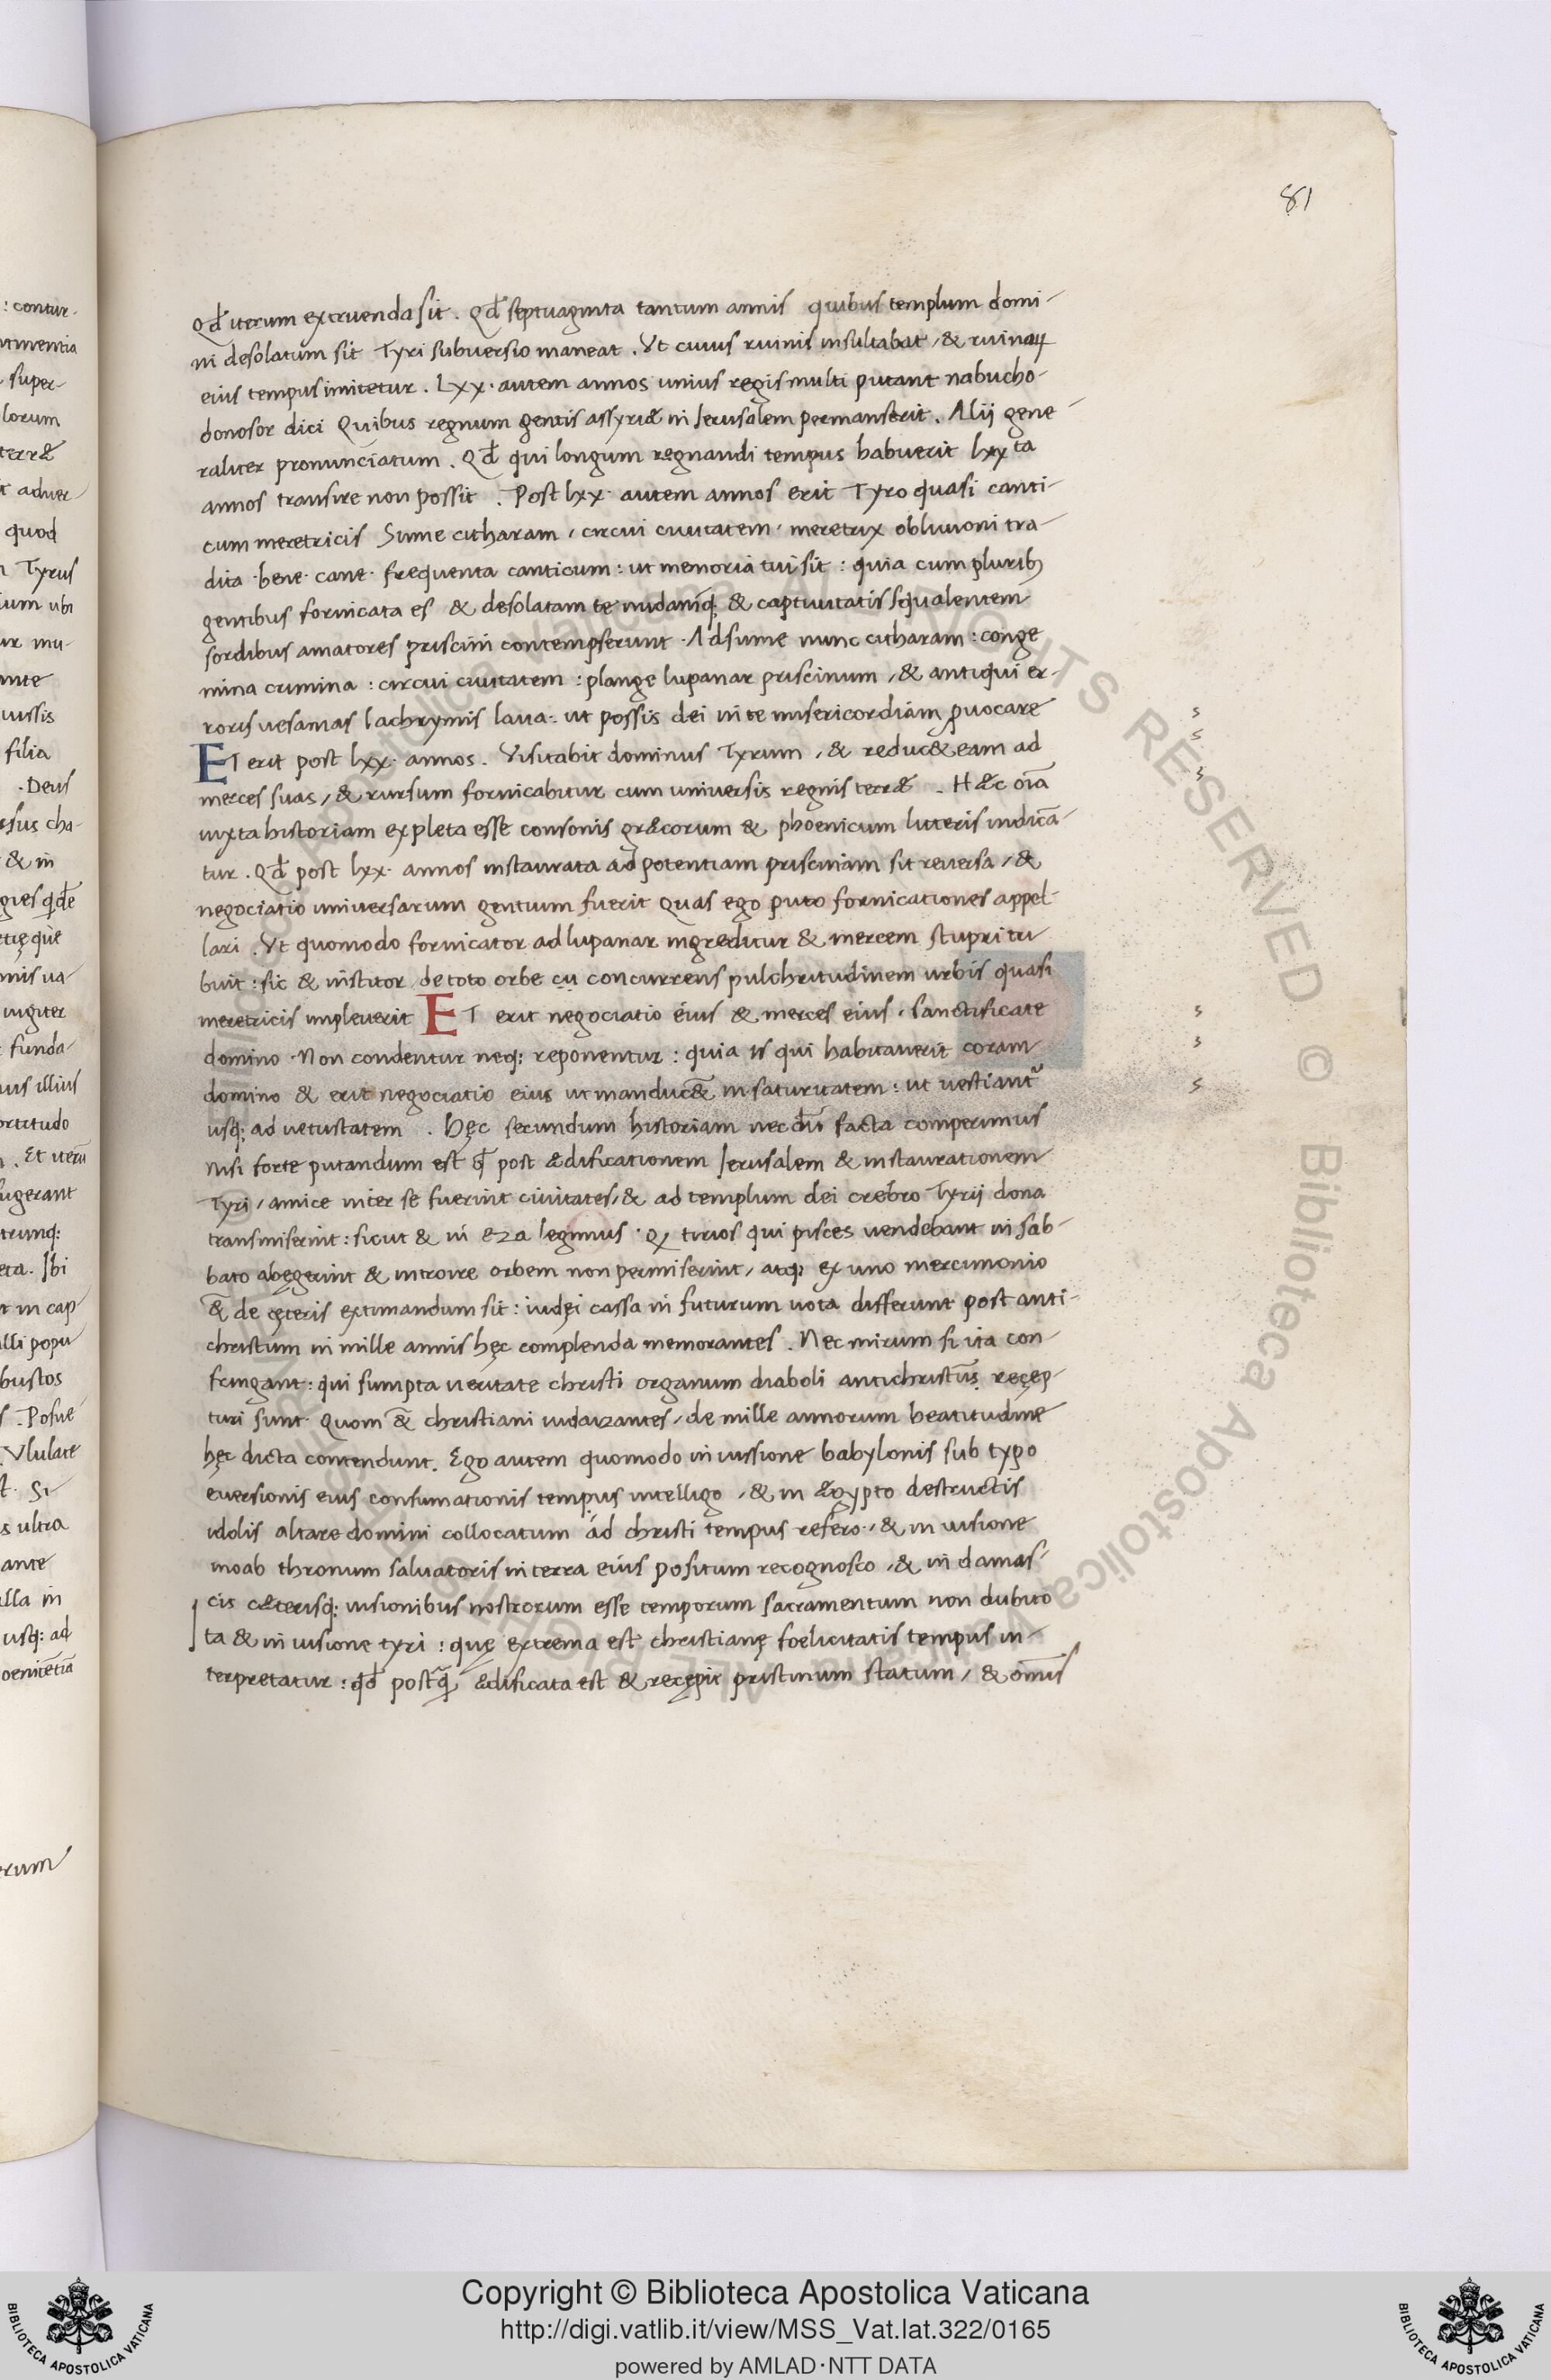 81
Qđ iterum extruenda sit . Qđ septuaginta tantum annis quibus templum domi-
ni desolatum sit Tyri subuersio maneat . Vt cuius ruinis insultabat / & ruinaꝝ
eius tempus imitetur . Lxx · autem annos unius regis multi putant nabucho-
donosor dici Quibus regnum gentis assyriæ in Ierusalem permanserit . Alij gene-
raliter pronunciatum . Qđ qui longum regnandi tempus habuerit lxxta
annos transire non possit . Post lxx · autem annos erit Tyro quasi canti-
cum meretricis Sume citharam / circui ciuitatem / meretrix obliuioni tra-
dita · bene · cane · frequenta canticum : ut memoria tui sit : quia cum plurib;
gentibus fornicata es & desolatam te nudamq; & captiuitatis squalentem
sordibus amatores priscini contempserunt · Adsume nunc citharam : conge
mina crimina : circui ciuitatem : plange lupanar priscinum , & antiqui er-
roris uesanias lachrymis laua : ut possis dei in te misericordiam ꝓuocare
ET erit post lxx · annos . Visitabit dominus Tyrum , & reduc& eam ad
merces suas , & rursum fornicabitur cum uniuersis regnis terræ . Hæc oīa
iuxta historiam expleta esse consonis græcorum & phoenicum litteris indica-
tur . Qđ post lxx · annos instaurata ad potentiam priscinam sit reuersa / &
negociatio uniuersarum gentium fuerit quas ego puto fornicationes appel-
lari . Vt quomodo fornicator ad lupanar ingreditur & mercem stupri tri
buit : sic & institor de toto orbe cu concurrens pulchritudinem urbis quasi
meretricis impleuerit ET erit negociatio eius & merces eius , sanctificate
domino · Non condentur neq; reponentur : quia is qui habitauerit coram
domino & erit negociatio eius ut manduc& in saturitatem : ut uestiant᷑
usq; ad uetustatem . Hęc secundum historiam necdū facta comperimus
nisi forte putandum est ꝙ post ædificationem Ierusalem & instaurationem
Tyri / amice inter se fuerint ciuitates / & ad templum dei crebro Tyrij dona
transmiserint : sicut & in eza legimus · Qꝫ tirios qui pisces uendebant in sab-
bato abęgerint & introire orbem non permiserint / atq; ex uno mercimonio
& de cęteris extimandum sit : iudęi cassa in futurum uota differunt post anti-
christum in mille annis hęc complenda memorantes . Nec mirum si ita con-
fringant : qui sumpta ueritate christi organum diaboli antichristum recęp-
turi sunt Quom & christiani iudaizantes / de mille annorum beatitudine
hęc dicta contendunt . Ego autem quomodo in uissione babylonis sub typo
euersionis eius consumationis tempus intelligo , & in Ægypto destructis
idolis altare domini collocatum ad christi tempus refero , & in uisione
moab thronum saluatoris in terra eius positum recognosco , & in damas-
cis cæterisq; uisionibus nostrorum esse temporum sacramentum non dubito
Ita & in uisione tyri : quę extrema est christianę foelicitatis tempus in-
terpretatur : qđ postq̄ ædificata est & recępit pristinum statum / & omīs
: contur-
super-
lorum
terræ
quod
Tyrus
ubi
filia
· Deus
& in
funda-
illius
. Et iterū
. Ibi
in cap-
popu
. Posue
Vlulate
. Si
ultra
ante
in
usq; ad
Copyright © Biblioteca Apostolica Vaticana
http://digi.vatlib.it/view/MSS_Vat.lat.322/0165
powered by AMLAD·NTT DATA
BIBLIOTECA APOSTOLICA VATICANA
BIBLIOTECA APOSTOLICA VATICANA